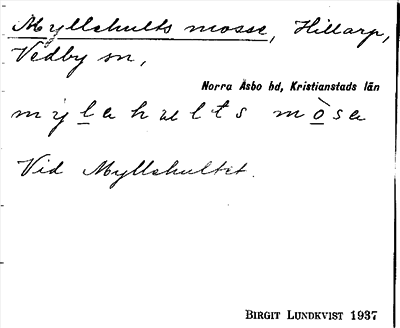 Myllshults mosse, Hillarp,
Vedby sn,
Norra Åsbo hd, Kristianstads län
mỳlahults mòsa
Vid Myllshultet.
BIRGIT LUNDKVIST 1937